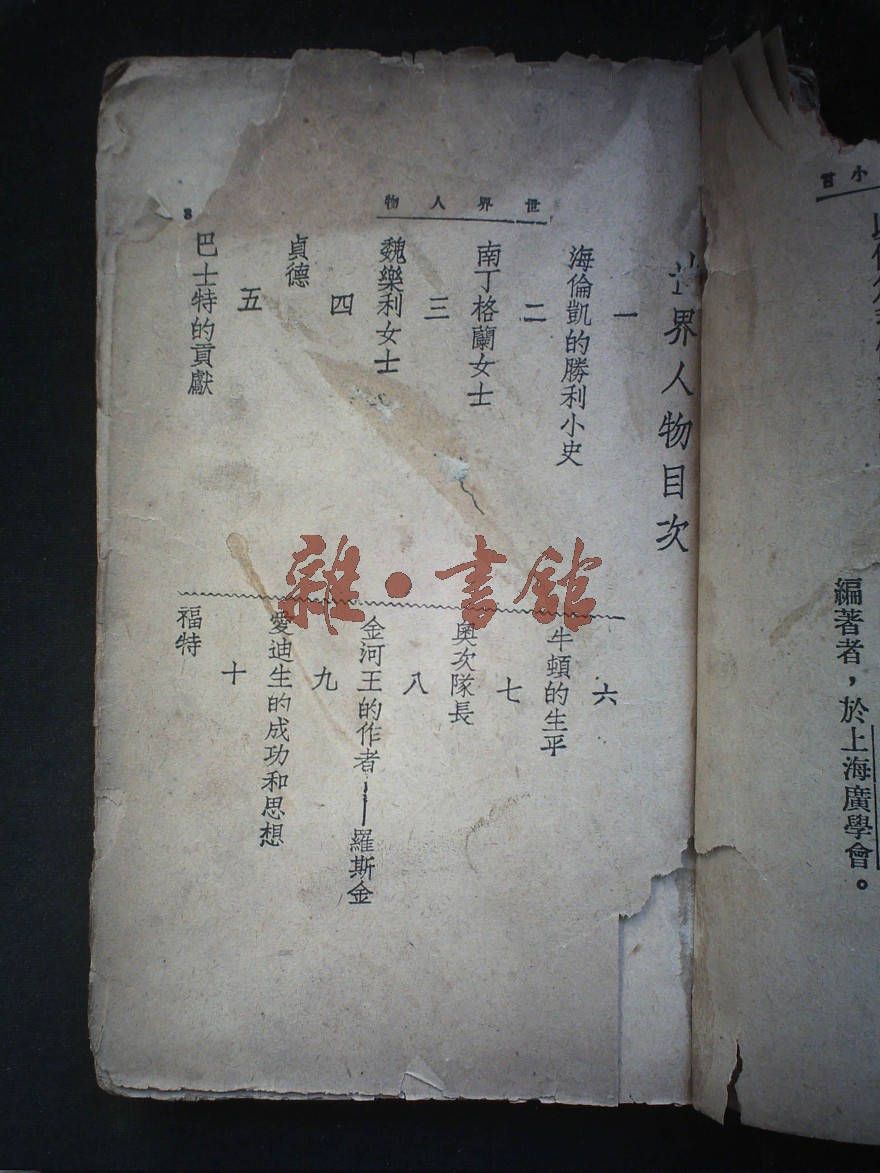 世界人物
8
世界人物目次
一
海倫凱的勝利小史
二
南丁格蘭女士
三
魏樂利女士
四
貞德
五
巴士特的貢獻
六
牛頓的生平
七
奧次隊長
八
金河王的作者——羅斯金
九
愛迪生的成功和思想
十
福特
雜·書館
小言
編著者,於上海廣學會。